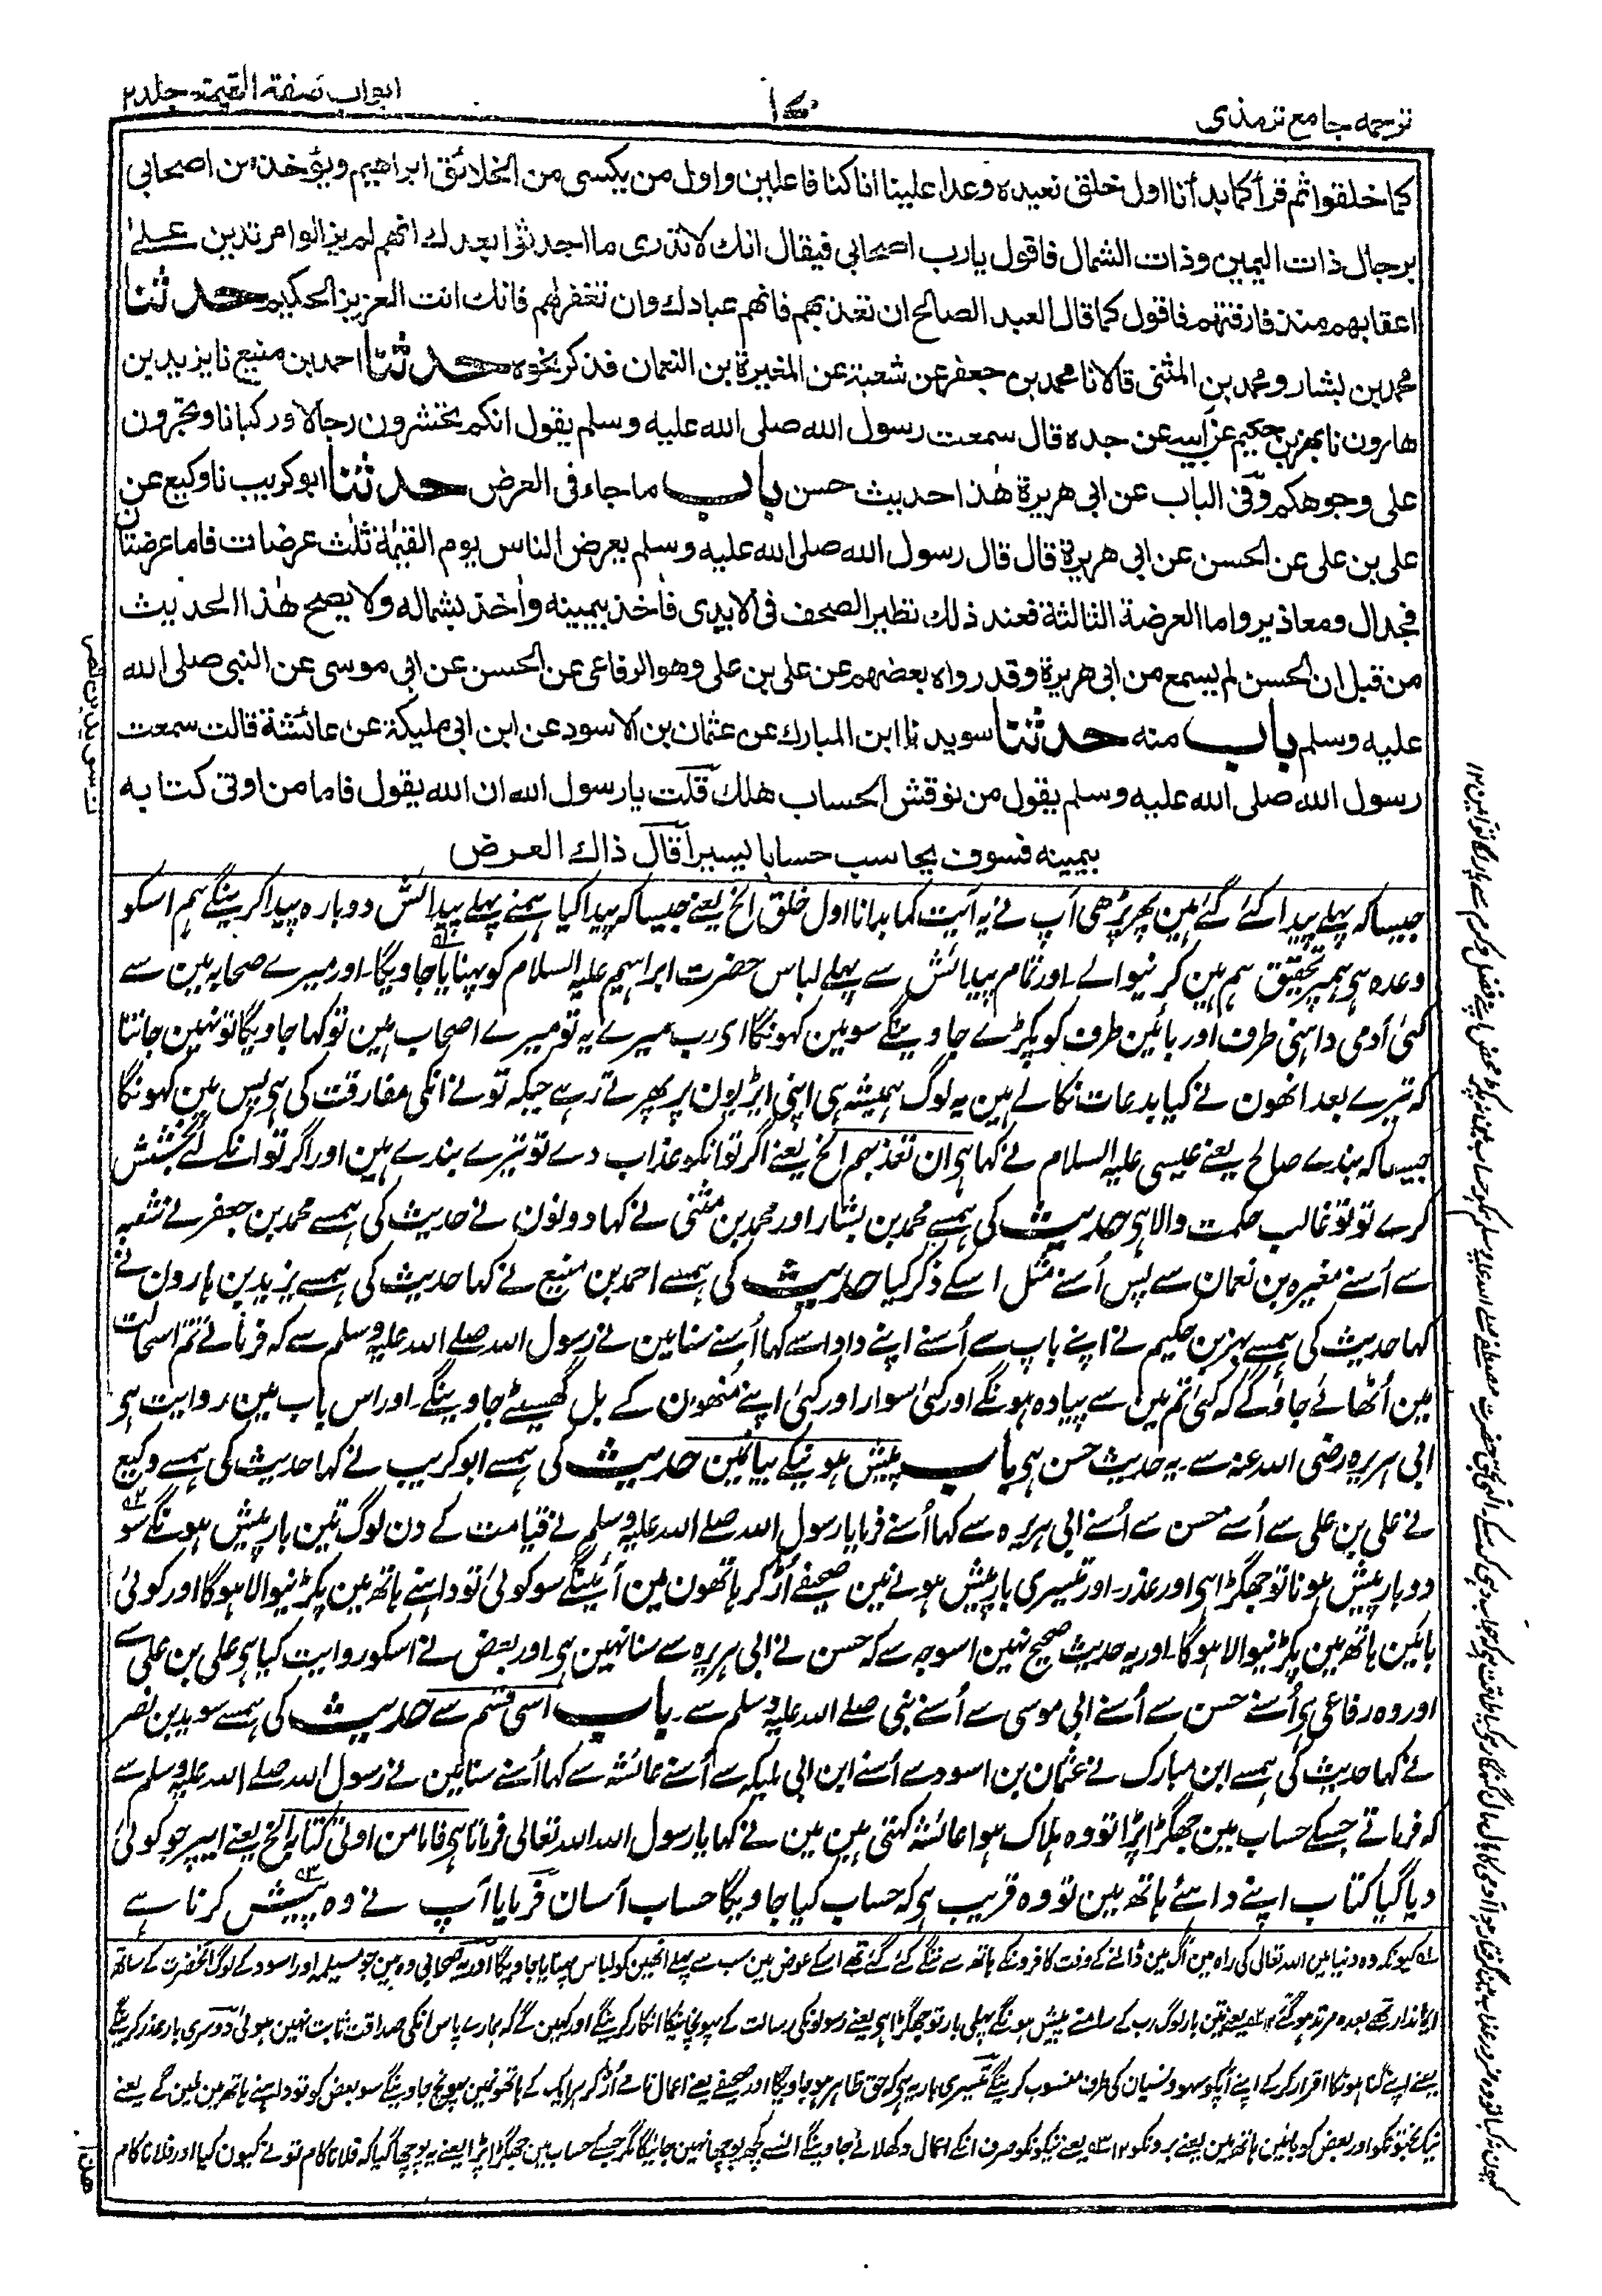 ترجمہ جامع ترمذی
ابواب صفة القیمة جلد ۲
کما خلقوا ثم قرأ کما بدأنا اول خلق نعیده وعدا علینا انا کنا فاعلین واول من یکسی من الخلائق ابراهیم ویؤخذ من اصحابی
برجال ذات الیمین وذات الشمال فاقول یارب اصحابی فیقال انك لا تدری ما احدثوا بعدك انهم لم یزالوا مرتدین علی
اعقابهم منذ فارقتهم فاقول کما قال العبد الصالح ان تعذبهم فانهم عبادك وان تغفر لهم فانك انت العزیز الحکیم حدثنا
محمد بن بشار ومحمد بن المثنی قالا نا محمد بن جعفر عن شعبة عن المغیرة بن النعمان فذکر نحوه حدثنا احمد بن منیع نا یزید بن
هارون نا بهز بن حکیم عن ابیه عن جده قال سمعت رسول الله صلی الله علیه وسلم یقول انکم تحشرون رجالا ورکبانا وتجرون
علی وجوهکم وفی الباب عن ابی هریرة هٰذا حدیث حسن باب ما جاء فی العرض حدثنا ابو کریب نا وکیع عن
علی بن علی عن الحسن عن ابی هریرة قال قال رسول الله صلی الله علیه وسلم یعرض الناس یوم القیٰمة ثلٰث عرضات فاما عرضتان
فجدال ومعاذیر واما العرضة الثالثة فعند ذلك تطیر الصحف فی الایدی فاٰخذ بیمینه واٰخذ بشماله ولا یصح هٰذا الحدیث
من قبل ان الحسن لم یسمع من ابی هریرة وقد رواه بعضهم عن علی بن علی وهو الرفاعی عن الحسن عن ابی موسی عن النبی صلی الله
علیه وسلم باب منه حدثنا سوید نا ابن المبارك عن عثمان بن الاسود عن ابن ابی ملیکة عن عائشة قالت سمعت
رسول الله صلی الله علیه وسلم یقول من نوقش الحساب هلك قلت یا رسول الله ان الله یقول فاما من اوتی کتابه
بیمینه فسوف یحاسب حسابا یسیرا قال ذاك العرض
جیسا کہ پہلے پیدا کئے گئے ہین پھر پڑھی آپ نے یہ آیت کما بدانا اول خلق الخ یعنے جیسا کہ پیدا کیا ہمنے پہلے پیدائش دوبارہ پیدا کرینگے ہم اسکو
وعدہ ہی ہمپر تحقیق ہم ہین کرنیوالے۔ اور تمام پیدائش سے پہلے لباس حضرت ابراہیم علیہ السلام کو پہنایا جاویگا۔ اور میرے صحابہ مین سے
کئی آدمی داہنی طرف اور بائین طرف کو پکڑے جاوینگے سو مین کہونگا ای رب میرے یہ تو میرے اصحاب ہین تو کہا جاویگا تو نہین جانتا
کہ تیرے بعد انھون نے کیا بدعات نکالے ہین یہ لوگ ہمیشہ ہی اپنی ایڑیون پر پھرتے رہے جبکہ تو نے انکی مفارقت کی ہی پس مین کہونگا
جیسا کہ بندے صالح یعنے عیسی علیہ السلام نے کہا ہی ان تعذبہم الخ یعنے اگر تو انکو عذاب دے تو تیرے بندے ہین اور اگر تو انکے لئے بخشش
کرے تو تو غالب حکمت والا ہی حدیث کی ہمسے محمد بن بشار اور محمد بن مثنی نے کہا دونون نے حدیث کی ہمسے محمد بن جعفر نے شعبہ
سے اُسنے مغیرہ بن نعمان سے پس اُسنے مثل اسکے ذکر کیا حدیث کی ہمسے احمد بن منیع نے کہا حدیث کی ہمسے یزید بن ہارون نے
کہا حدیث کی ہمسے بہز بن حکیم نے اپنے باپ سے اُسنے اپنے دادا سے کہا اُسنے سنا مین نے رسول اللہ صلے اللہ علیہ وسلم سے کہ فرماتے تم اسحالت
مین اُٹھائے جاؤگے کہ کئی تم مین سے پیادہ ہونگے اور کئی سوار اور کئی اپنے منھون کے بل گھسیٹے جاوینگے۔ اور اس باب مین روایت ہی
ابی ہریرہ رضی اللہ عنہ سے۔ یہ حدیث حسن ہی باب پیش ہونیکے بیانمین حدیث کی ہمسے ابو کریب نے کہا حدیث کی ہمسے وکیع
نے علی بن علی سے اُسنے حسن سے اُسنے ابی ہریرہ سے کہا اُسنے فرمایا رسول اللہ صلے اللہ علیہ وسلم نے قیامت کے دن لوگ تین بار پیش ہونگے سو
دو بار پیش ہونا تو جھگڑا ہی اور عذر۔ اور تیسری بار پیش ہونے مین صحیفے اُڑ کر ہاتھون مین آئینگے سو کوئی تو داہنے ہاتھ مین پکڑنیوالا ہوگا اور کوئی
بائین ہاتھ مین پکڑنیوالا ہوگا۔ اور یہ حدیث صحیح نہین اسوجہ سے کہ حسن نے ابی ہریرہ سے سنا نہین ہی۔ اور بعض نے اسکو روایت کیا ہی علی بن علی سے
اور وہ رفاعی ہی اُسنے حسن سے اُسنے ابی موسی سے اُسنے نبی صلے اللہ علیہ وسلم سے۔ باب اسی قسم سے حدیث کی ہمسے سوید بن نصر
نے کہا حدیث کی ہمسے ابن مبارک نے عثمان بن اسود سے اُسنے ابن ابی ملیکہ سے اُسنے عائشہ سے کہا اُسنے سنا مین نے رسول اللہ صلے اللہ علیہ وسلم سے
کہ فرماتے جسکے حساب مین جھگڑا پڑا تو وہ ہلاک ہوا عائشہ کہتی ہین مین نے کہا یا رسول اللہ اللہ تعالی فرماتا ہی فاما من اوتی کتابہ الخ یعنے ایپر جو کوئی
دیا گیا کتاب اپنے داہنے ہاتھ مین تو وہ قریب ہی کہ حساب کیا جاویگا حساب آسان فرمایا آپ نے وہ پیش کرنا ہے
ل۱ کیونکہ وہ دنیا مین اللہ تعالی کی راہ مین آگ مین ڈالنے کے وقت کافرونکے ہاتھ سے ننگے کئے گئے تھے اسکے عوض مین سب سے پہلے انھین کو لباس پہنایا جاویگا اور یہ صحابی وہ ہین جو مسیلمہ اور اسود کے لوگ آنحضرت کے ساتھ
ایماندار تھے بعدہ مرتد ہوگئے ۱۲ ل۲ یعنے تین بار لوگ رب کے سامنے پیش ہونگے پہلی بار تو جھگڑا ہی یعنے رسولونکی رسالت کے پہونچانیکا انکار کرینگے اور کہین گے کہ ہمارے پاس انکی صداقت ثابت نہین ہوئی دوسری بار عذر کرینگے
یعنے اپنے گناہونکا اقرار کرکے اپنے آپکو سہو و نسیان کی طرف منسوب کرینگے تیسری بار یہ ہی کہ حق ظاہر ہو جاویگا اور صحیفے یعنے اعمال نامے اُڑ کر ہر ایک کے ہاتھونمین پہونچ جاوینگے سو بعض کو تو داہنے ہاتھ مین ملین گے یعنے
نیک بختونکو اور بعض کو بائین ہاتھ مین یعنے برونکو ۱۲ ل۳ یعنے نیکونکو صرف انکے اعمال دکھلائے جاوینگے انسے کچھ پوچھا نہین جائیگا مگر جسکے حساب مین جھگڑا پڑا یعنے یہ پوچھا گیا کہ فلانا کام تو نے کیون کیا اور فلانا کام